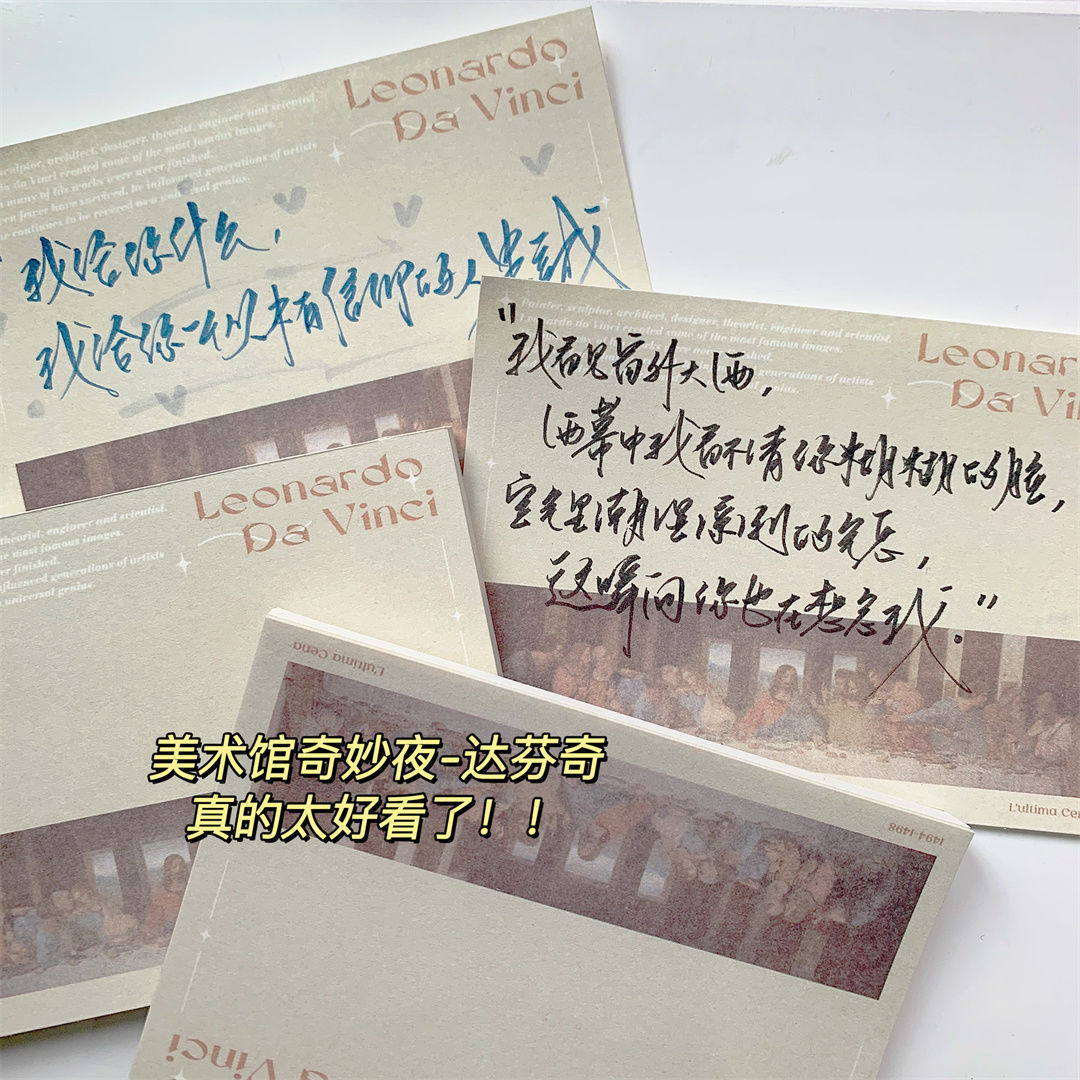 Leonardo
Da Vinci
sculptor, architect, designer, theorist, engineer and scientist.
da Vinci created some of the most famous images.
many of his works were never finished.
fewer have survived, he influenced generations of artists
continues to be revered
genius.
我给你什么，
我给你一从未有信仰的人忠诚
Painter, sculptor, architect, designer, theorist, engineer and scientist.
Leonardo da Vinci created some of the most famous images.
works were never finished.
generations of artists
Leonar
Da Vi
"我看见窗外大洒，
洒幕中我看不清你糊糊的脸，
空气里潮湿深刻的
这瞬间你也在想念我。"
L'ultima Cen
Leonardo
Da Vinci
theorist, engineer and scientist.
most famous images.
finished.
influenced generations of artists
universal genius.
L'ultima Cena
1494-1498
美术馆奇妙夜-达芬奇
真的太好看了！！
a Vinci